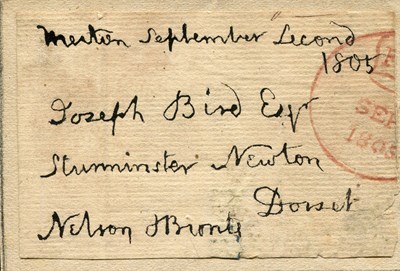 Merton September Second
1805
Joseph Bird Esqr
Sturminster Newton
Dorset
Nelson & Bronte
SEP
1805